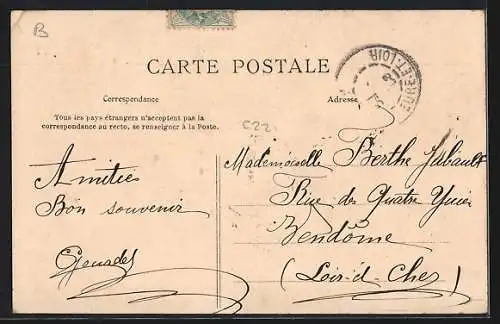 B
CARTE POSTALE
Correspondance
Adresse
Tous les pays étrangers n'acceptent pas la
correspondance au recto, se renseigner à la Poste.
C22
Mademoiselle Berthe
Amitiés
Rue des Quatre
Bon souvenir
Vendôme
(Loir-et-Cher)
ET-LOIR